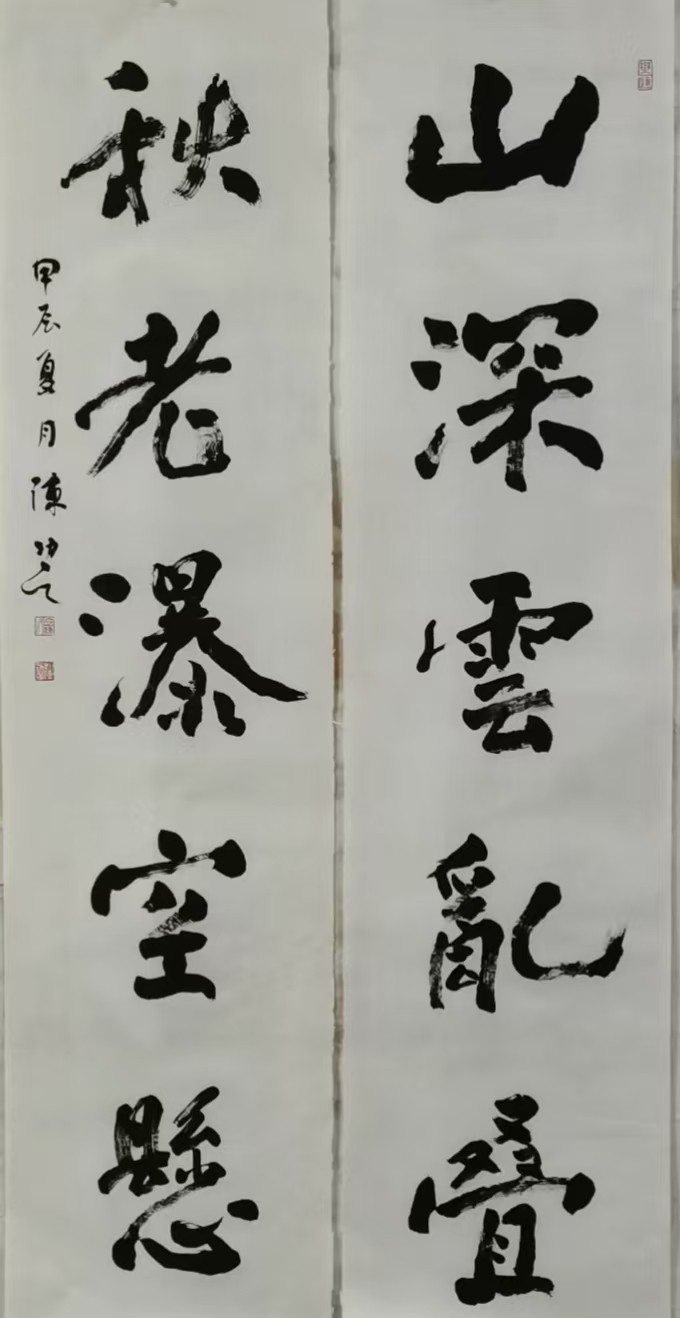 山深雲亂叠
秋老瀑空懸
甲辰夏月陳